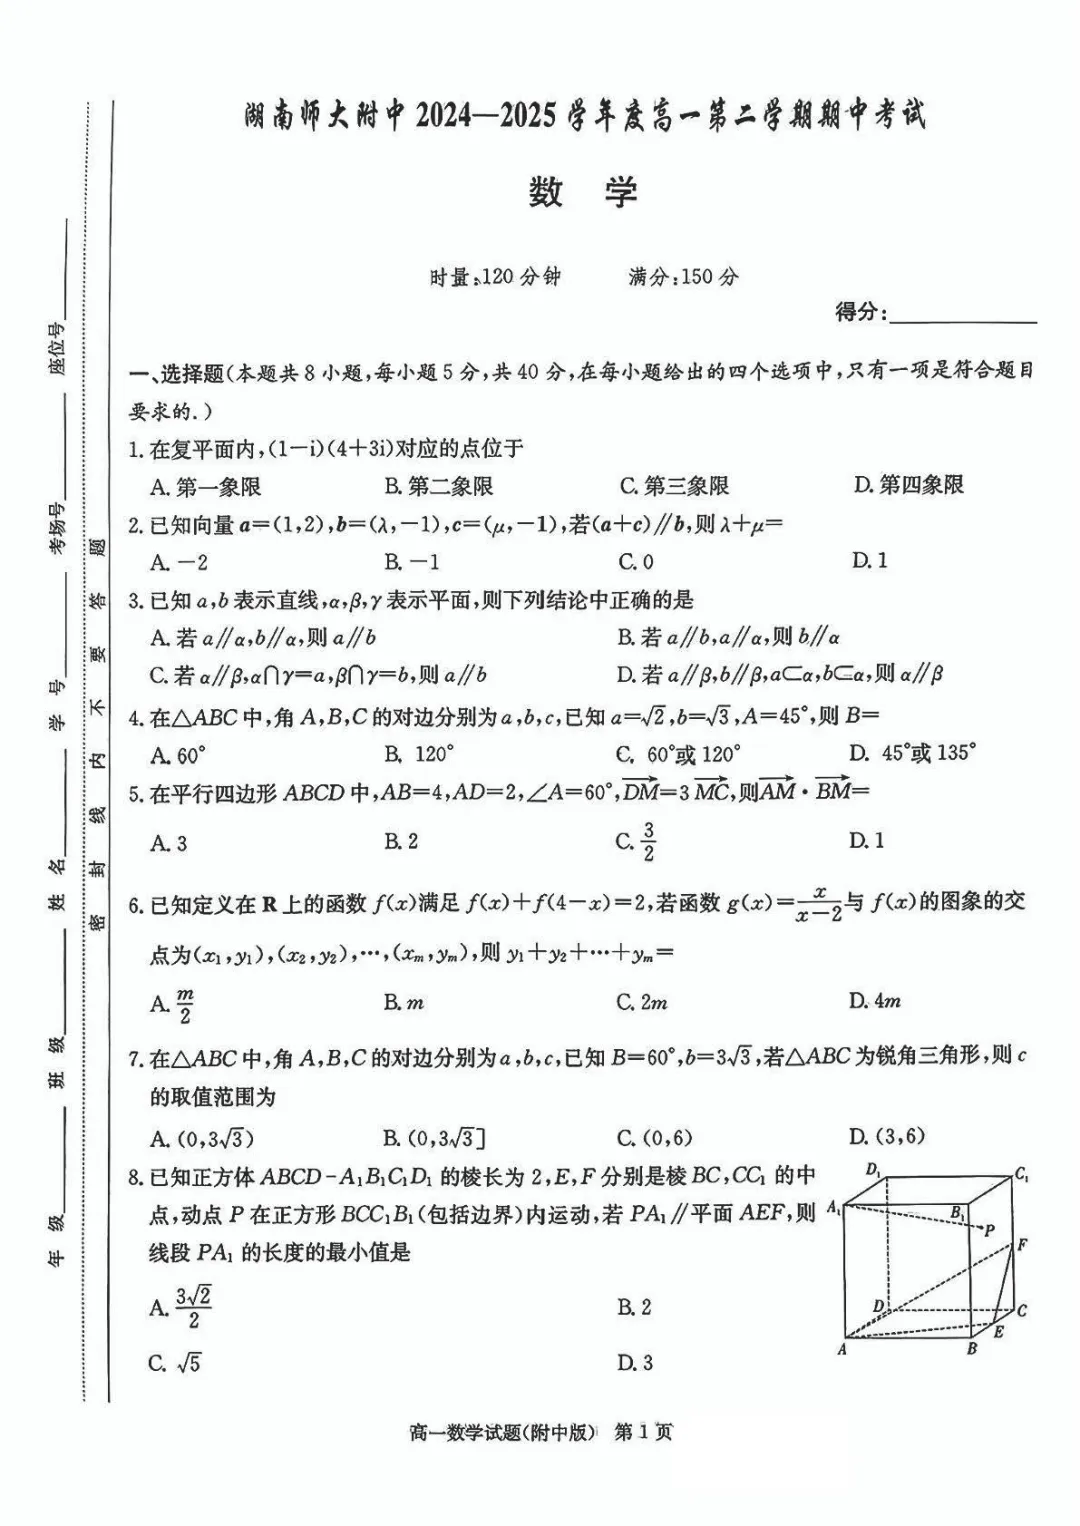 湖南师大附中2024—2025学年度高一第二学期期中考试
数 学
时量:120分钟 满分:150分
得分:
一、选择题(本题共8小题,每小题5分,共40分,在每小题给出的四个选项中,只有一项是符合题目
要求的.)
1.在复平面内,(1-i)(4+3i)对应的点位于
A.第一象限 B.第二象限 C.第三象限 D.第四象限
2.已知向量a=(1,2),b=(λ,-1),c=(μ,-1),若(a+c)∥b,则λ+μ=
A.-2 B.-1 C.0 D.1
3.已知a,b表示直线,α,β,γ表示平面,则下列结论中正确的是
A.若a∥α,b∥α,则a∥b B.若a∥b,a∥α,则b∥α
C.若α∥β,α∩γ=a,β∩γ=b,则a∥b D.若a∥β,b∥β,a⊂α,b⊂α,则α∥β
4.在△ABC中,角A,B,C的对边分别为a,b,c,已知a=√2,b=√3,A=45°,则B=
A.60° B.120° C.60°或120° D.45°或135°
5.在平行四边形ABCD中,AB=4,AD=2,∠A=60°,DM=3MC,则AM·BM=
A.3 B.2 C.3/2 D.1
6.已知定义在R上的函数f(x)满足f(x)+f(4-x)=2,若函数g(x)=x/(x-2)与f(x)的图象的交
点为(x₁,y₁),(x₂,y₂),…,(xₘ,yₘ),则y₁+y₂+…+yₘ=
A.m/2 B.m C.2m D.4m
7.在△ABC中,角A,B,C的对边分别为a,b,c,已知B=60°,b=3√3,若△ABC为锐角三角形,则c
的取值范围为
A.(0,3√3) B.(0,3√3] C.(0,6) D.(3,6)
8.已知正方体ABCD-A₁B₁C₁D₁的棱长为2,E,F分别是棱BC,CC₁的中
点,动点P在正方形BCC₁B₁(包括边界)内运动,若PA₁∥平面AEF,则
线段PA₁的长度的最小值是
A.3√2/2 B.2
C.√5 D.3
D₁ C₁
A₁ B₁ P
F
D C
E
A B
高一数学试题(附中版) 第1页
年级 班级 姓名 学号 考场号 座位号
密封线内不要答题